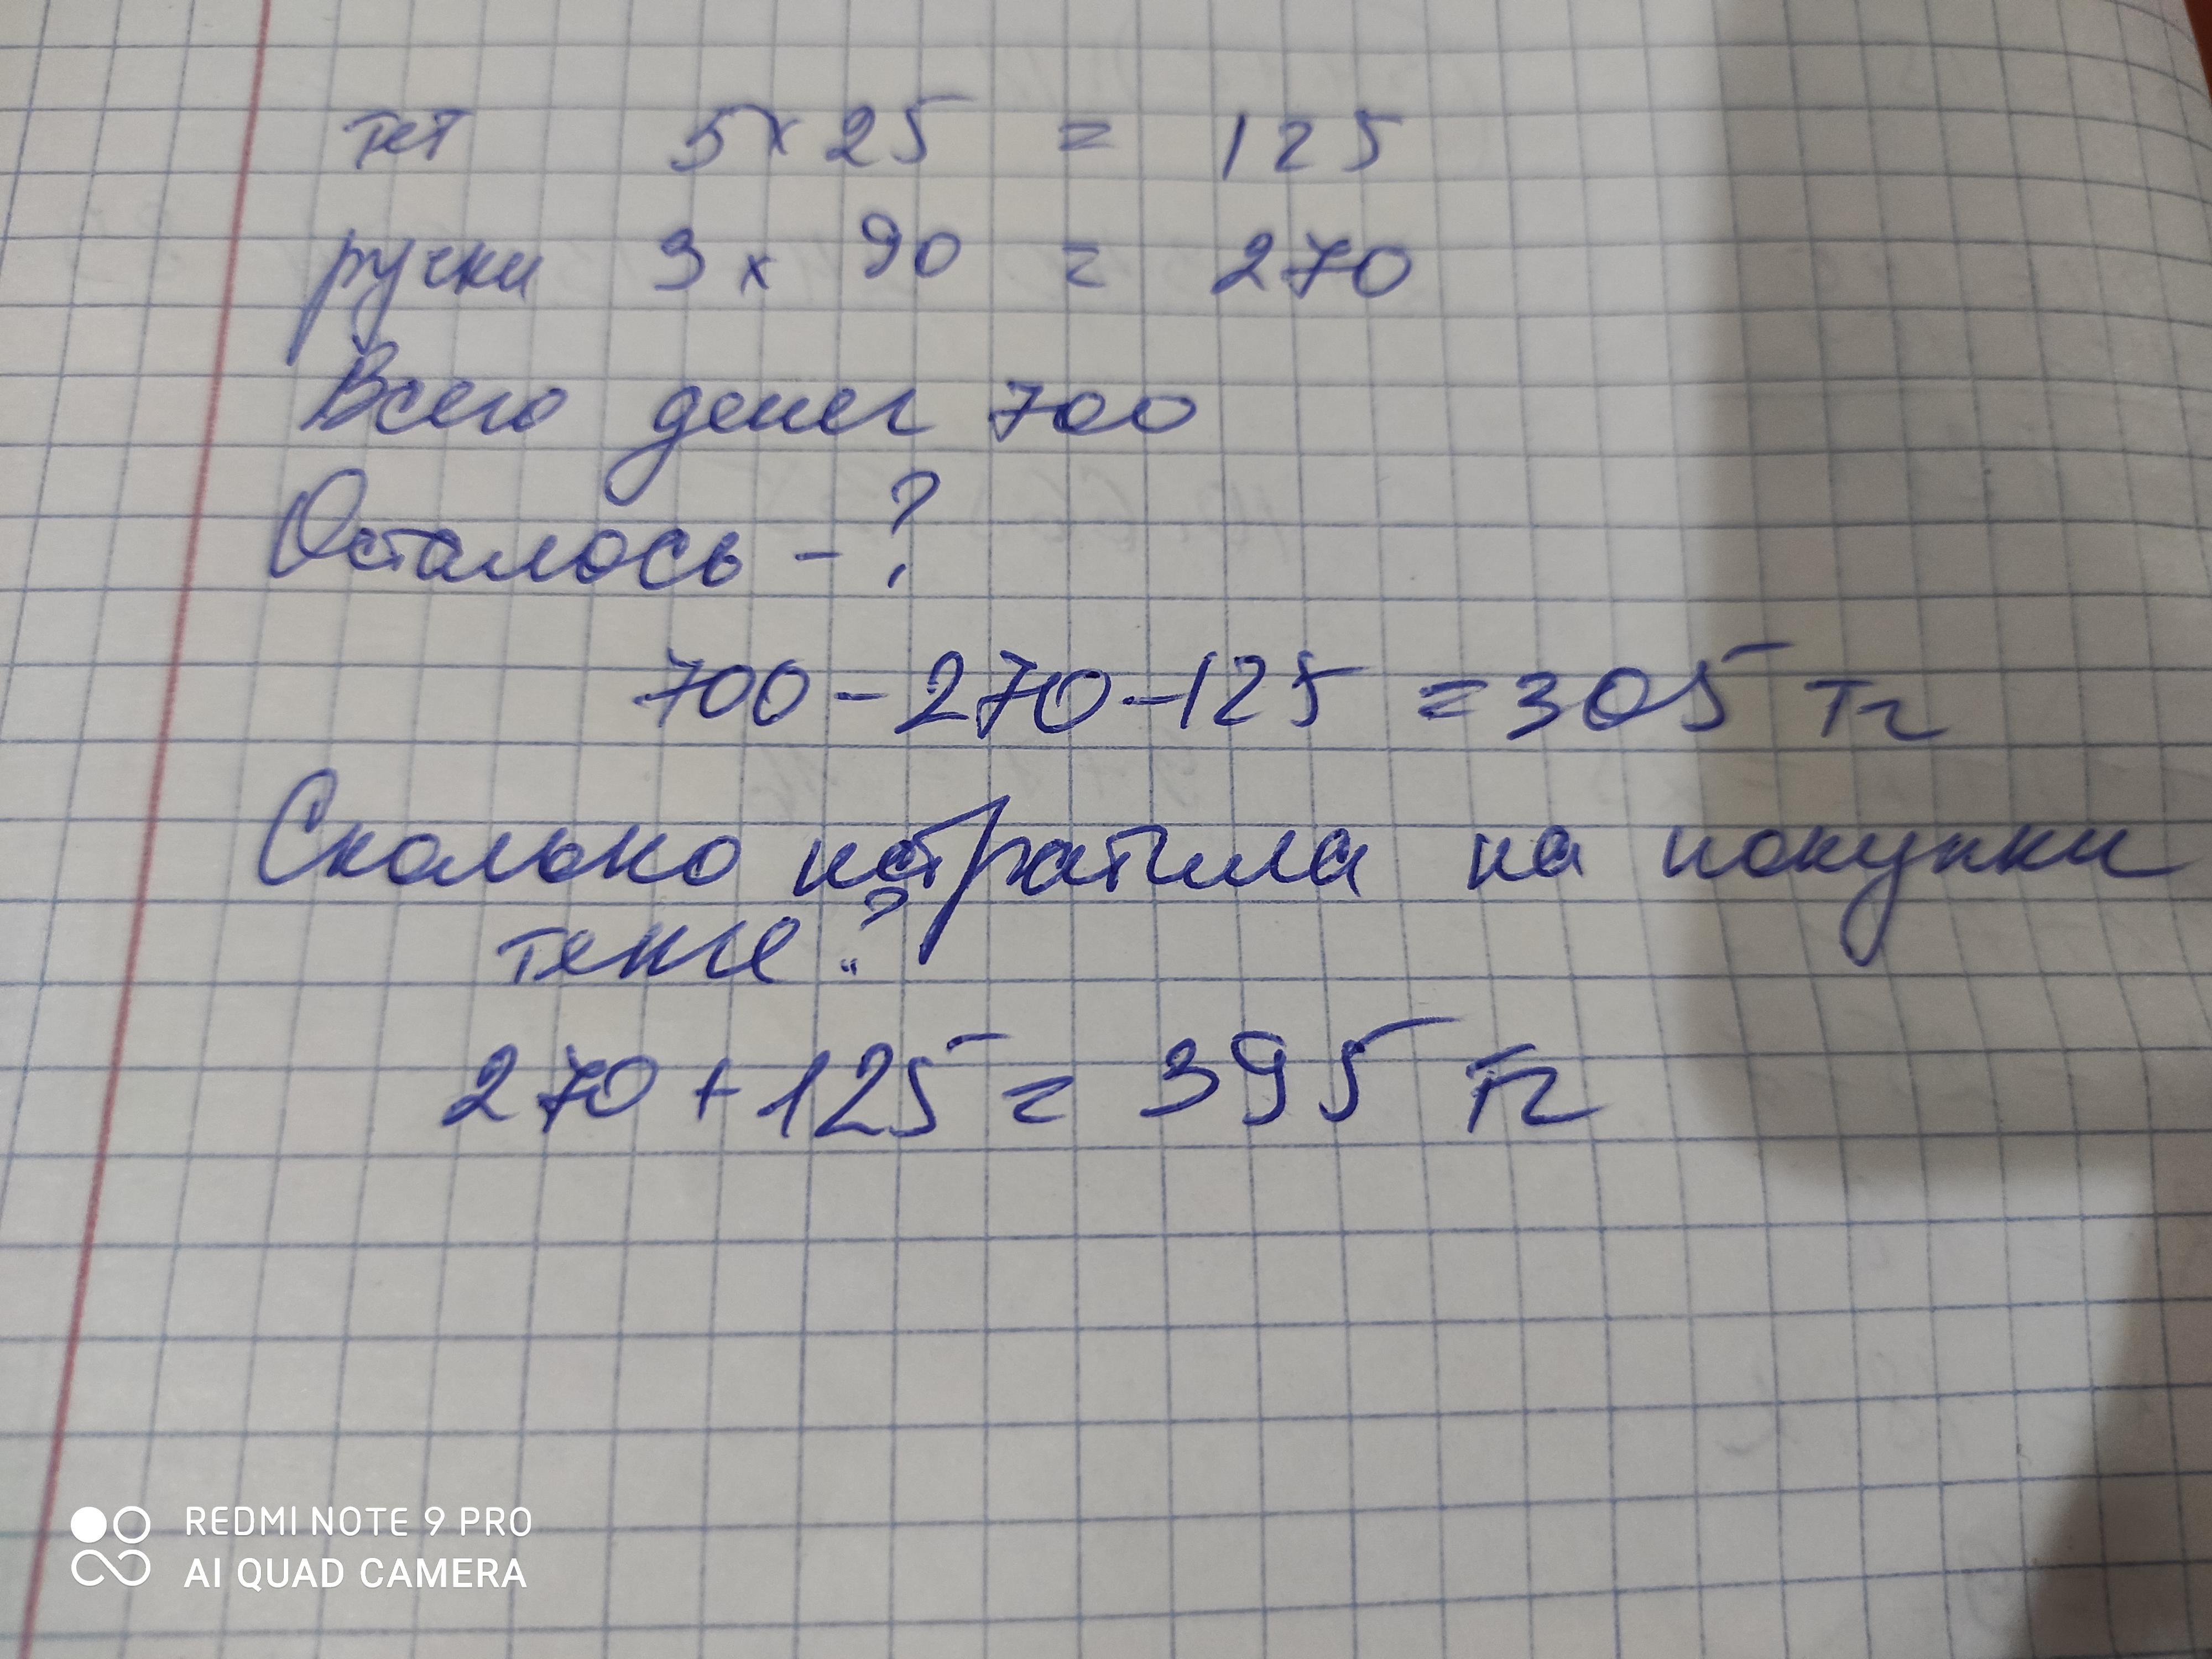 тет 5 x 25 = 125
ручки 3 x 90 = 270
Всего денег 700
Осталось - ?
700 - 270 - 125 = 305 тг
Сколько истратила на покупки
тенге?
270 + 125 = 395 тг
REDMI NOTE 9 PRO
AI QUAD CAMERA